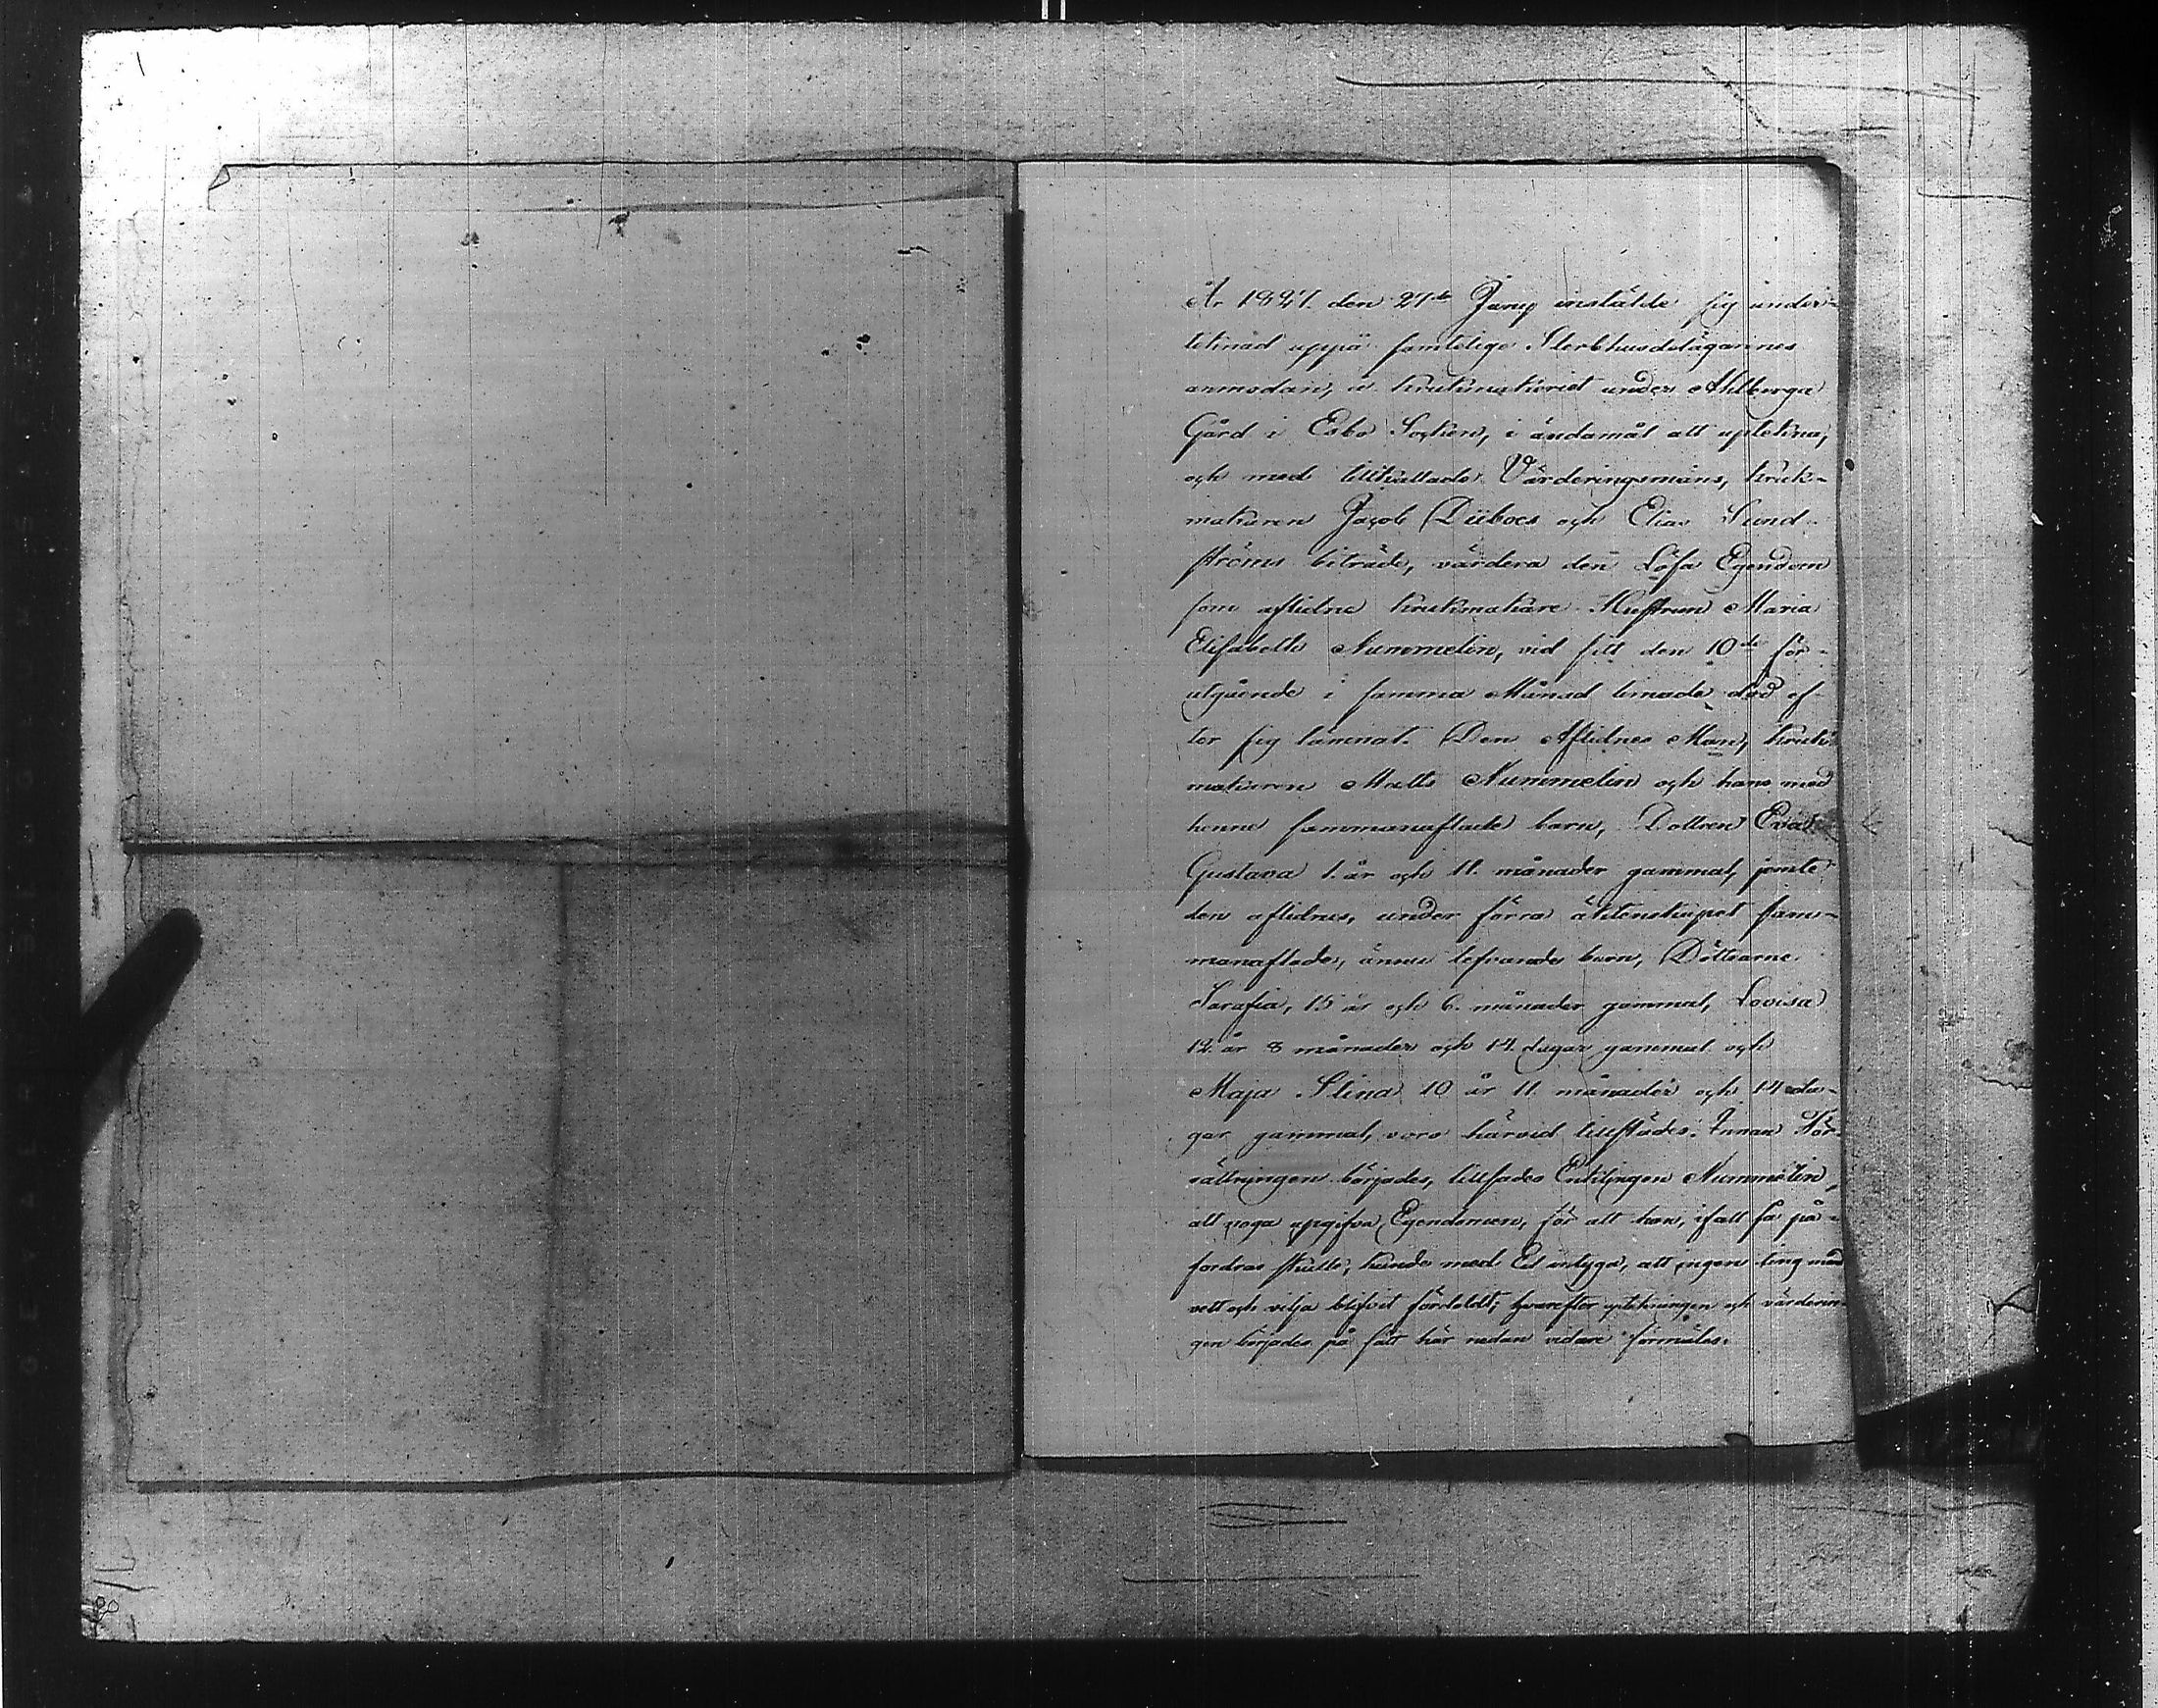 År 1827. den 27de Janry instälde sig under-
teknad uppå samtelige Sterbhusdelägarnes
anmodan, å krukmakeriet under Ahlberga
Gård i Esbo Socken, i ändamål att uptekna,
och med tillkallade Värderingsmäns, kruk-
makaren Jacob Dübocs och Elias Sund-
ströms biträde, värdera den Lösa Egendom
som aflidne krukmakare Hustrun Maria
Elisabeth Nummelin, vid sitt den 10de för-
utgående i samma Månad timade död ef-
ter sig lämnat. Den Aflidnes Man, kruk-
makaren Matts Nummelin och hans med
henne sammanaflade barn, Dottren Eva
Gustava 1. år och 11. månader gammal, jemte
den aflidnes, under förra äktenskapet sam-
manaflade, ännu lefvande barn, Döttrarne
Sarafia, 15 år och 6. månader gammal, Lovisa
12. år 8 månader och 14. dagar gammal och
Maja Stina 10 år 11. månader och 14 da-
gar gammal, voro härvid tillstädes. Innan För-
rättningen börjades, tillsades Enklingen Nummelin,
att noga uppgifva Egendomen, för att han, ifall så på-
fordras skulle, kunde med Ed intyga, att ingen ting med
vett och vilja blifvit fördoldt; hvarefter uptekningen och värderin-
gen börjades på sätt här nedan vidare förmäles.